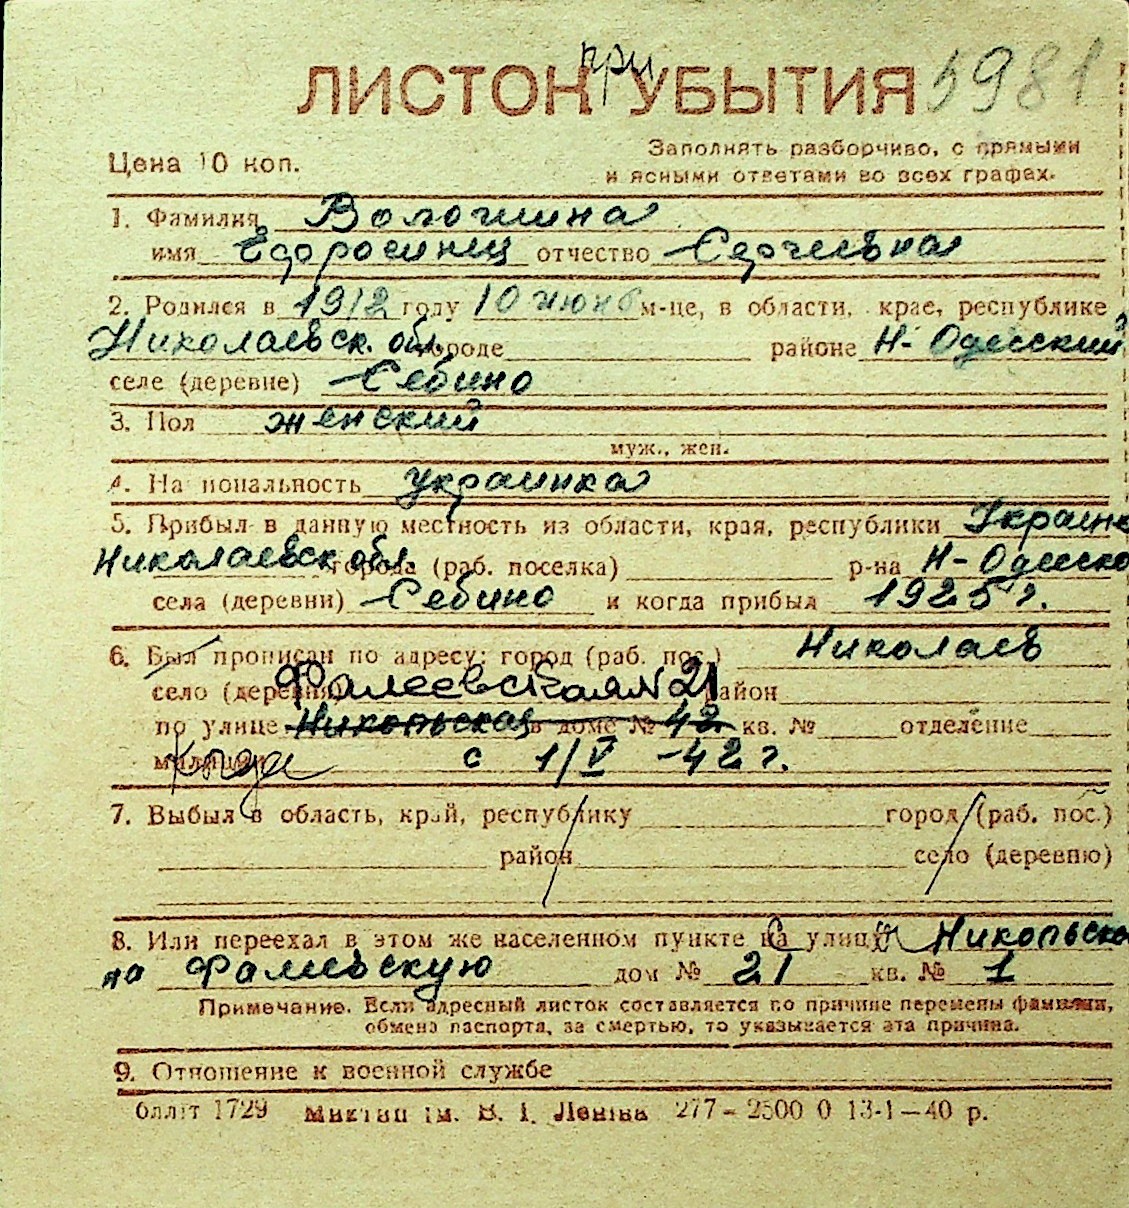 при
ЛИСТОК УБЫТИЯ 5981
Цена 10 коп.
Заполнять разборчиво, с прямыми
и ясными ответами во всех графах.
1. Фамилия Волошина
имя отчество Сергеевна
2. Родился в 1912 году 10 июня м-це, в области, крае, республике
Николаевск. обл. городе районе Н-Одесский
селе (деревне) Себино
3. Пол женский
муж., жен.
4. Национальность украинка
5. Прибыл в данную местность из области, края, республики
Николаевск обл. города (раб. поселка) р-на Н-Одесско
села (деревни) Себино и когда прибыл 1925 г.
6. Был прописан по адресу: город (раб. пос.) Николаев
село (деревня) Фалеевская № 21 район
по улице Никольская в доме № 42 кв. № отделение
милиции когда с 1/V -42 г.
7. Выбыл в область, край, республику город (раб. пос.)
район село (деревню)
8. Или переехал в этом же населенном пункте на улицу с Никольско
на Фалеевскую дом № 21 кв. № 1
Примечание. Если адресный листок составляется по причине перемены фамилии,
обмена паспорта, за смертью, то указывается эта причина.
9. Отношение к военной службе
1729 ім. В. І. Леніна 277 - 2500 0 13-1-40 р.